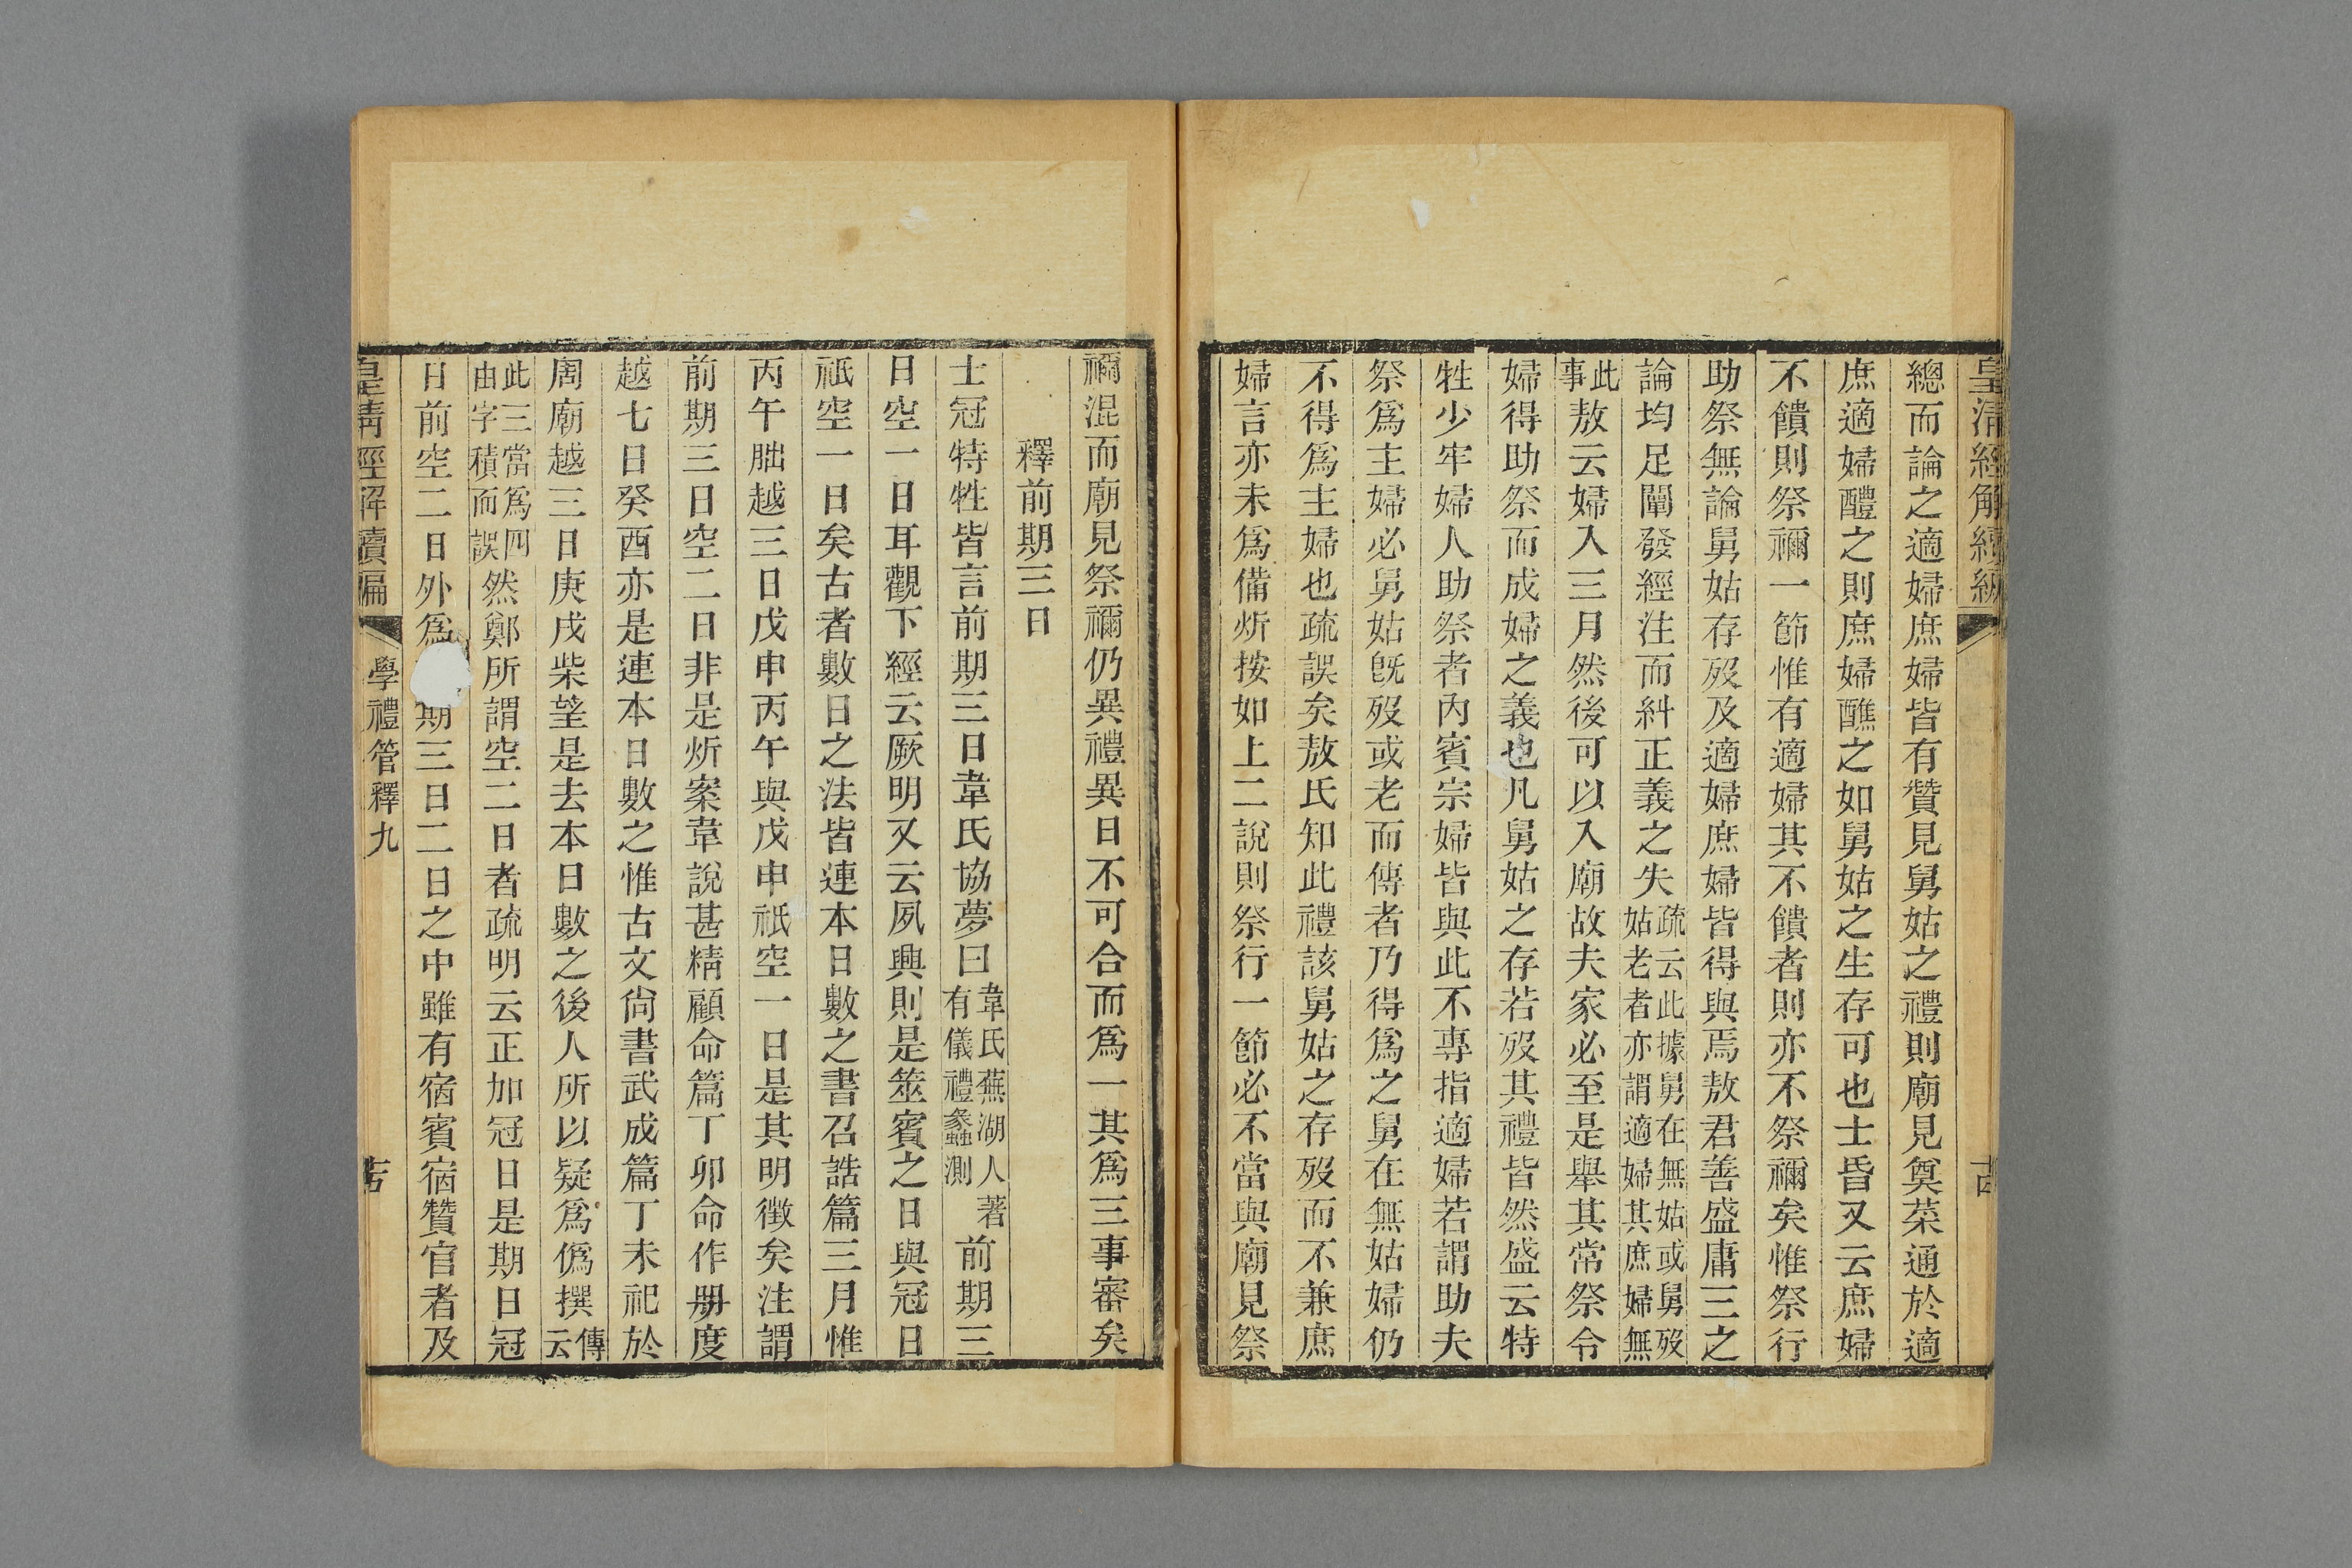 皇清經解續編
總而論之適婦庶婦皆有贊見舅姑之禮則廟見奠菜通於適
庶適婦醴之則庶婦醮之如舅姑之生存可也士昏又云庶婦
不饋則祭禰一節惟有適婦其不饋者則亦不祭禰矣惟祭行
助祭無論舅姑存歿及適婦庶婦皆得與焉敖君善盛庸三之
論均足闡發經注而糾正義之失疏云此據舅在無姑或舅歿姑老者亦謂適婦其庶婦無
此事敖云婦入三月然後可以入廟故夫家必至是舉其常祭令
婦得助祭而成婦之義也凡舅姑之存若歿其禮皆然盛云特
牲少牢婦人助祭者內賓宗婦皆與此不專指適婦若謂助夫
祭爲主婦必舅姑旣歿或老而傳者乃得爲之舅在無姑婦仍
不得爲主婦也疏誤矣敖氏知此禮該舅姑之存歿而不兼庶
婦言亦未爲備炘按如上二說則祭行一節必不當與廟見祭
禰混而廟見祭禰仍異禮異日不可合而爲一其爲三事審矣
釋前期三日
士冠特牲皆言前期三日韋氏協夢曰韋氏蕪湖人著有儀禮蠡測前期三
日空一日耳觀下經云厥明又云夙興則是筮賓之日與冠日
祇空一日矣古者數日之法皆連本日數之書召誥篇三月惟
丙午朏越三日戊申丙午與戊申祇空一日是其明徵矣注謂
前期三日空二日非是炘案韋說甚精顧命篇丁卯命作册度
越七日癸酉亦是連本日數之惟古文尙書武成篇丁未祀於
周廟越三日庚戌柴望是去本日數之後人所以疑爲僞撰傳云
此三當爲四由字積而誤然鄭所謂空二日者疏明云正加冠日是期日冠
日前空二日外爲期三日二日之中雖有宿賓宿贊官者及
皇淸經解續編
學禮管釋九